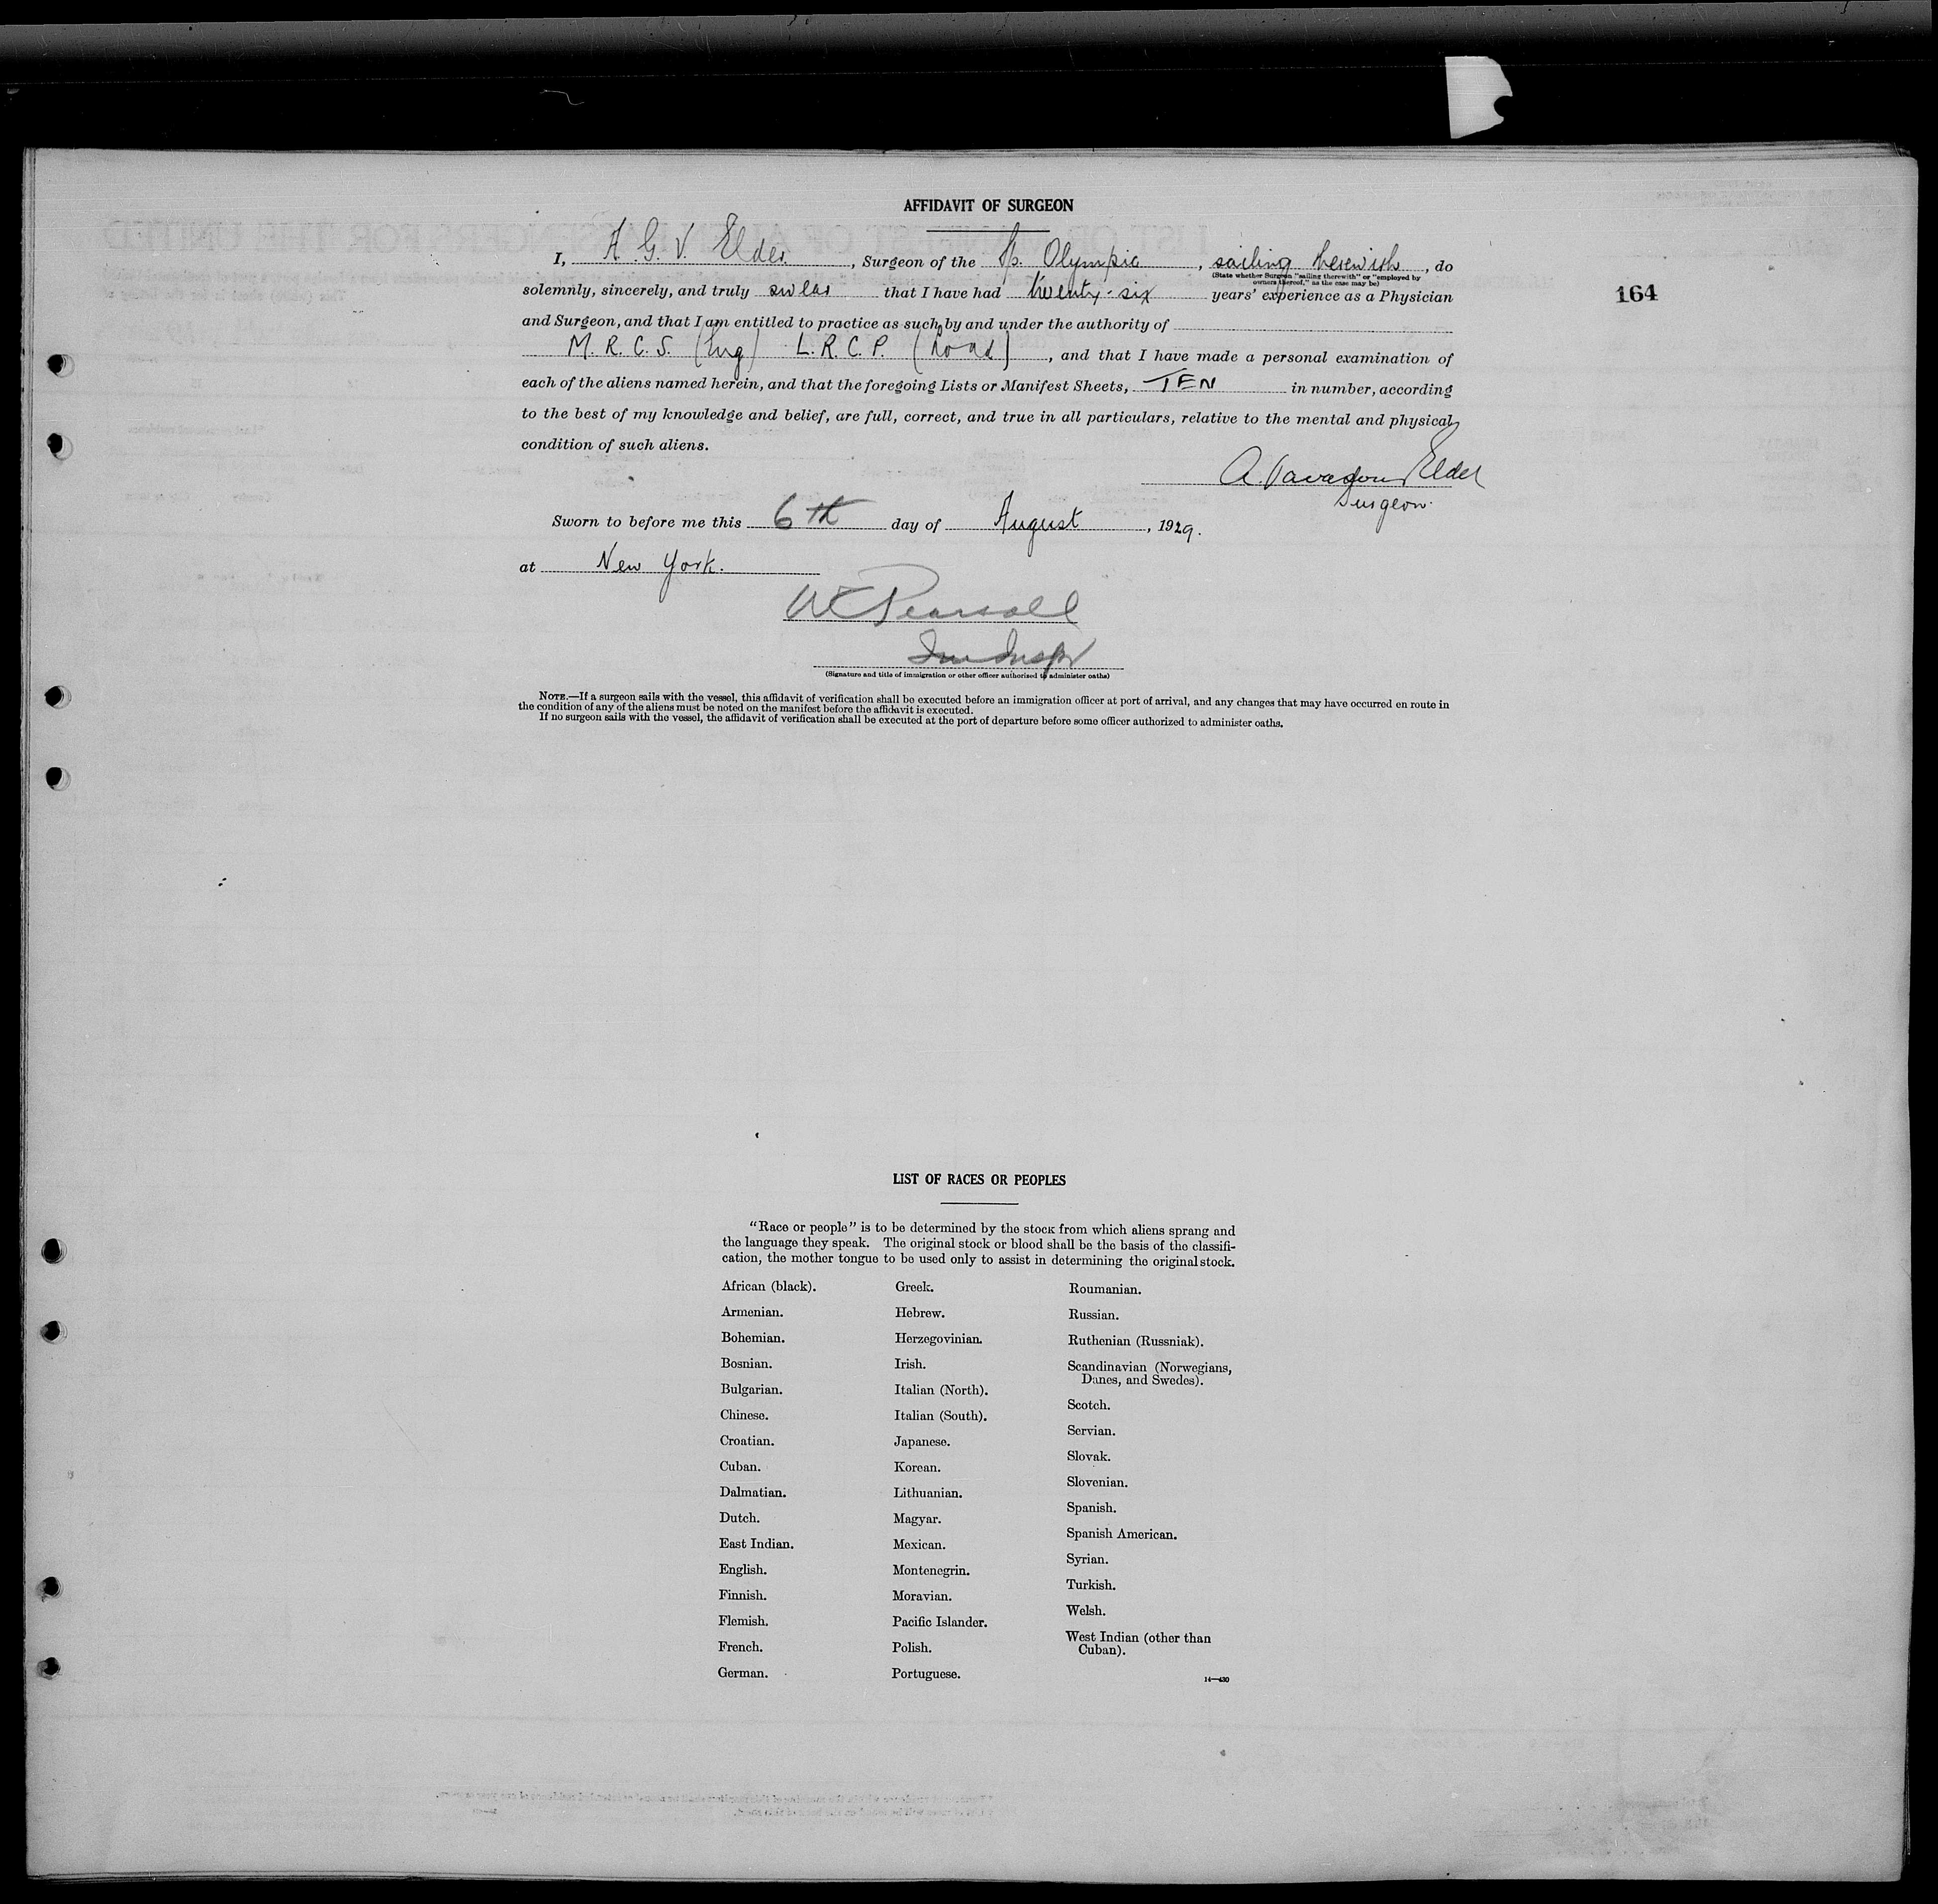 AFFIDAVIT OF SURGEON
I, A. G. V. Elder, Surgeon of the Sp. Olympic, sailing herewith, do
(State whether Surgeon "sailing therewith" or "employed by
owners thereof," as the case may be)
solemnly, sincerely, and truly swear that I have had twenty-six years' experience as a Physician
164
and Surgeon, and that I am entitled to practice as such by and under the authority of
M. R. C. S. (Eng) L. R. C. P. (Lond), and that I have made a personal examination of
each of the aliens named herein, and that the foregoing Lists or Manifest Sheets, TEN in number, according
to the best of my knowledge and belief, are full, correct, and true in all particulars, relative to the mental and physical
condition of such aliens.
A. Vavasour Elder
Surgeon.
Sworn to before me this 6th day of August, 1929.
at New York.
WC Pearsall
Imm Inspr
(Signature and title of immigration or other officer authorised to administer oaths)
NOTE.—If a surgeon sails with the vessel, this affidavit of verification shall be executed before an immigration officer at port of arrival, and any changes that may have occurred en route in
the condition of any of the aliens must be noted on the manifest before the affidavit is executed.
If no surgeon sails with the vessel, the affidavit of verification shall be executed at the port of departure before some officer authorized to administer oaths.
LIST OF RACES OR PEOPLES
"Race or people" is to be determined by the stock from which aliens sprang and
the language they speak. The original stock or blood shall be the basis of the classifi-
cation, the mother tongue to be used only to assist in determining the original stock.
African (black).
Armenian.
Bohemian.
Bosnian.
Bulgarian.
Chinese.
Croatian.
Cuban.
Dalmatian.
Dutch.
East Indian.
English.
Finnish.
Flemish.
French.
German.
Greek.
Hebrew.
Herzegovinian.
Irish.
Italian (North).
Italian (South).
Japanese.
Korean.
Lithuanian.
Magyar.
Mexican.
Montenegrin.
Moravian.
Pacific Islander.
Polish.
Portuguese.
Roumanian.
Russian.
Ruthenian (Russniak).
Scandinavian (Norwegians,
Danes, and Swedes).
Scotch.
Servian.
Slovak.
Slovenian.
Spanish.
Spanish American.
Syrian.
Turkish.
Welsh.
West Indian (other than
Cuban).
14—430